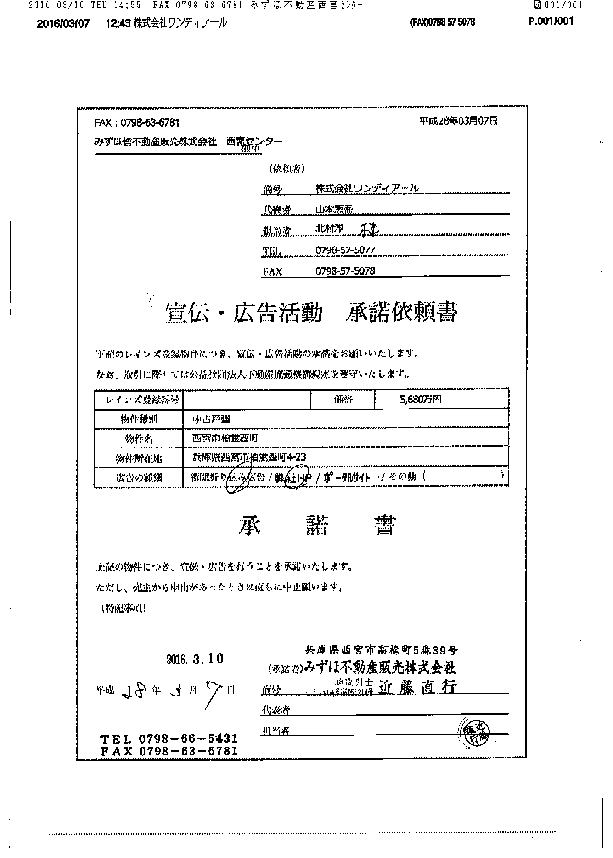 2016 03/10 TEL 14:55 FAX 0798 63 6781 みずほ不動産西宮センター 001/001
2016/03/07 12:43 株式会社ワンディアール (FAX)0798 57 5078 P.001/001
FAX：0798-63-6781 平成28年03月07日
みずほ信不動産販売株式会社 西宮センター
御中
(依頼者)
商号 株式会社ワンディアール
代表者
担当者 北村
TEL 0798-57-5077
FAX 0798-57-5078
宣伝・広告活動 承諾依頼書
下記のレインズ登録物件につき、宣伝・広告活動の承諾をお願いいたします。
なお、取引に際しては公益社団法人不動産流通機構規定を遵守いたします。
レインズ登録番号 価格 5,680万円
物件種別 中古戸建
物件名 西宮市柏堂西町
物件所在地 兵庫県西宮市柏堂西町4-23
広告の種類 新聞折り込み広告 / 自社HP / ポータルサイト / その他 ( )
承 諾 書
上記の物件につき、宣伝・広告を行うことを承諾いたします。
ただし、売主から申出があったときは直ちに中止願います。
(特記事項)
2016.3.10
平成 28 年 3 月 7 日
兵庫県西宮市高松町5番39号
(承諾者) みずほ不動産販売株式会社
商号 近藤直行
代表者
担当者
TEL 0798-66-5431
FAX 0798-63-6781